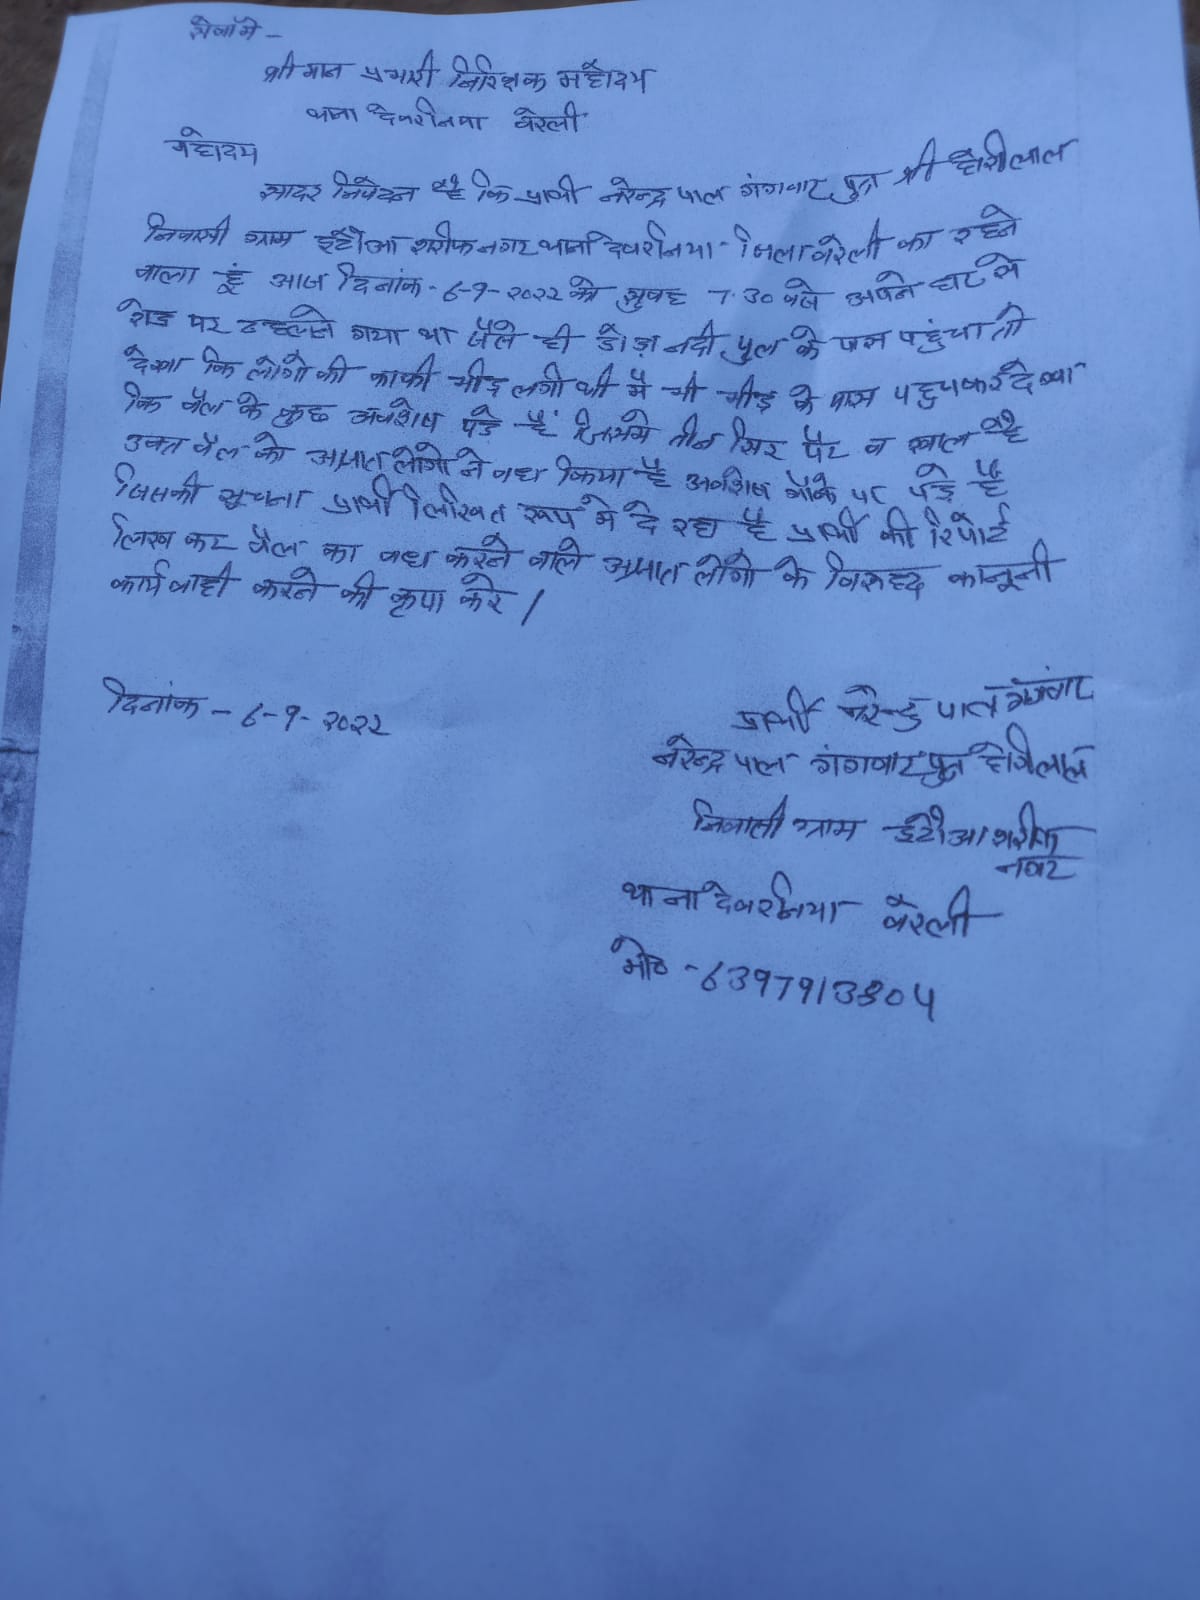 सेवामे -
श्री मान प्रभारी निरिक्षक महोदय
थाना देवरनिया बरेली
महोदय
सादर निवेदन है कि प्रार्थी नरेन्द्र पाल गंगवार पुत्र श्री होरीलाल
निवासी ग्राम इटौआ शरीफ नगर थाना देवरनिया जिला बरेली का रहने
वाला हूं आज दिनांक - 6-9-२०२२ को सुबह 7.30 बजे अपने घर से
रोड पर टहलने गया था जैसे ही डोड़ा नदी पुल के पास पहुंचा तो
देखा कि लोगो की काफी भीड़ लगी थी मै भी भीड़ के पास पहुचकर देखा
कि बैल के कुछ अवशेष पडे है जिसमे तीन सिर पैर व खाल है
उक्त बैल को अज्ञात लोगो ने वध किया है अवशेष मौके पर पड़े है
जिसकी सूचना प्रार्थी लिखित रूप मे दे रहा है प्रार्थी की रिपोर्ट
लिख कर बैल का वध करने वाले अज्ञात लोगो के विरुद्ध कानूनी
कार्यवाही करने की कृपा करे /
दिनांक - 6-9-२०२२
प्रार्थी नरेन्द्र पाल गंगवार
नरेन्द्र पाल गंगवार पुत्र होरीलाल
निवासी ग्राम इटौआ शरीफ
नगर
थाना देवरनिया बरेली
मो० - 6397913804